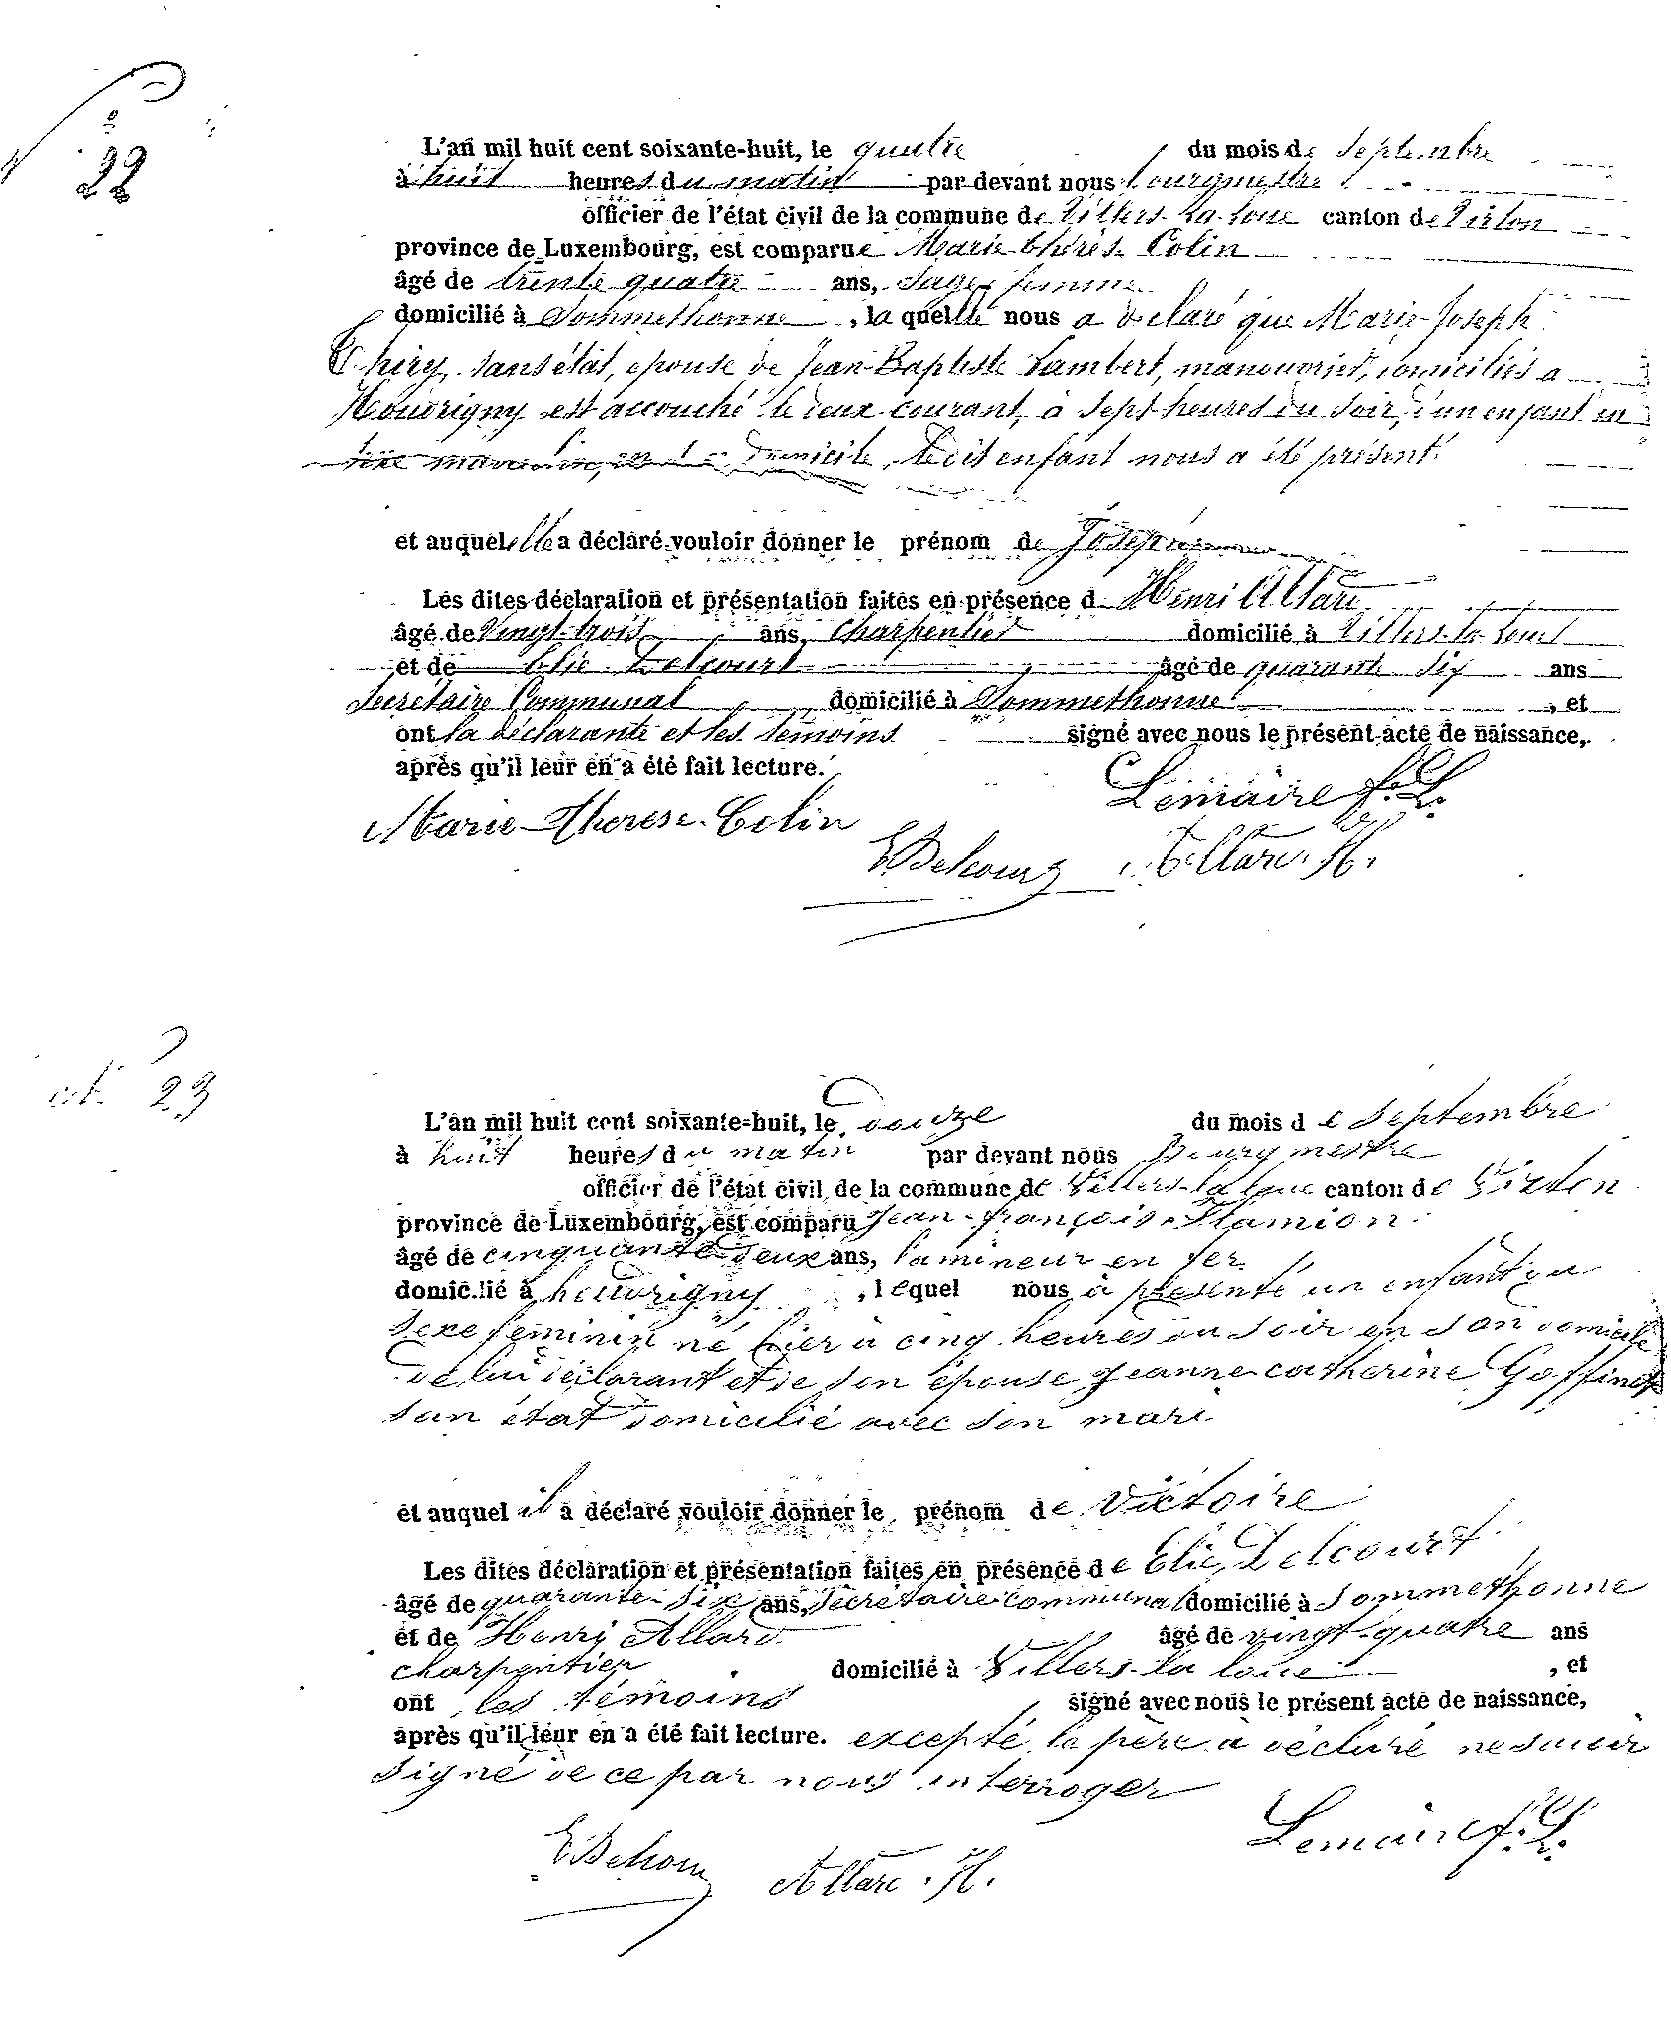 N° 22
L'an mil huit cent soixante-huit, le quatre du mois de Septembre
à huit heures du matin par devant nous bourgmestre
officier de l'état civil de la commune de Villers-la-loue canton de Virton
province de Luxembourg, est comparue Marie thérès Colin
âgé de trente quatre ans, Sage femme
domicilié à Sommethonne, la quelle nous a déclaré que Marie-Joseph
Thiry, sans état, epouse de Jean-Baptiste Lambert, manouvrier, domiciliés a
Houdrigny est accouché le deux courant, à sept heures du soir, d'un enfant du
sexe masculin, en domicile, Ledit enfant nous a été présenté
et auquel elle a déclaré vouloir donner le prénom de Joseph
Les dites déclaration et présentation faites en présence d Henri Allard
âgé de Vingt-trois ans, Charpentier domicilié à Villers-la-loue
et de Elie Delcourt âgé de quarante six ans
Secrétaire Communal domicilié à Sommethonne, et
ont la déclarante et les témoins signé avec nous le présent acte de naissance,
après qu'il leur en a été fait lecture.
Lemaire f. L.
Marie-Therese-Colin
E Delcourt Allard. H.
23
L'an mil huit cent soixante-huit, le Douze du mois de Septembre
à huit heures du matin par devant nous Bourgmestre
officier de l'état civil de la commune de Villers-la loue canton de Virton
province de Luxembourg, est comparu Jean-françois Flamion
âgé de cinquante deux ans, lamineur en fer
domicilié à houdrigny, lequel nous à présenté un enfant du
Sexe feminin né hier à cinq heures du Soir en Son domicile
de lui déclarant et de Son épouse Jeanne catherine Goffinet
San état domicilié avec Son mari
et auquel il a déclaré vouloir donner le prénom de Victoire
Les dites déclaration et présentation faites en présence de Elie Delcourt
âgé de quarante-Six ans, Secrétaire communal domicilié à Sommethonne
et de Henri Allard âgé de vingt-quatre ans
charpentier domicilié à Villers-la loue, et
ont les témoins signé avec nous le présent acte de naissance,
après qu'il leur en a été fait lecture. excepté le père a déclaré ne Savoir
Signé de ce par nous interroger
Lemaire f. L.
E Delcour Allard. H.